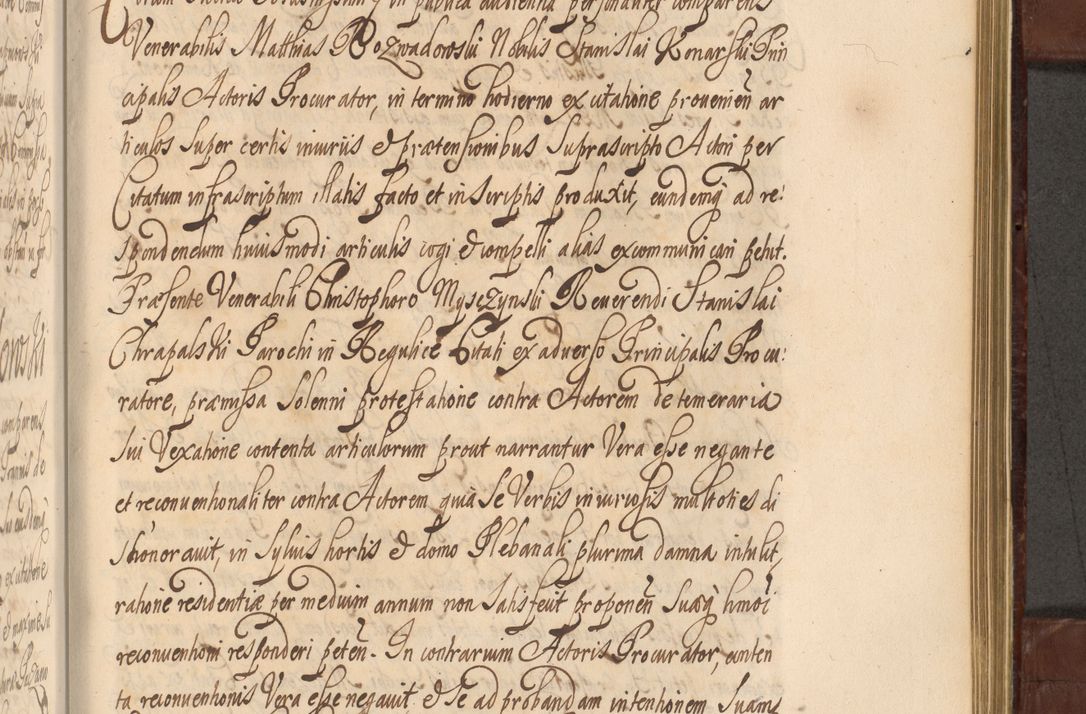 in publica audientia personaliter comparens
Venerabilis Matthias Rozwadowski Nobilis Stanislai Konarski Prin
cipalis Actoris Procurator, in termino hodierno ex citatione provenien ar
ticulos super certis iniuriis & prætensionibus suprascripto Actori per
Citatum infrascriptum illatis facto et in scriptis produxit, eundemq ad re:
spondendum huiusmodi articulis cogi & compelli alias excommunicari petiit.
Præsente Venerabili Christophoro Myszynski Reverendi Stanislai
Chrapalski Parochi in Regulice Citati ex adverso Principalis Procu:
ratore, præmissa solenni protestatione contra Actorem de temeraria
sui Vexatione contenta articulorum prout narrantur Vera esse negante
et reconventionaliter contra Actorem quia se Verbis iniuriosis multoties di
shonoravit, in sylvis hortis & domo Plebanali plurima damna intulit,
ratione residentiæ per medium annum non satisfecit proponen suæq hmoi
reconventioni responderi peten. In contrarium Actoris Procurator, conten
ta reconventionis Vera esse negavit & se ad probandam intentionem suam